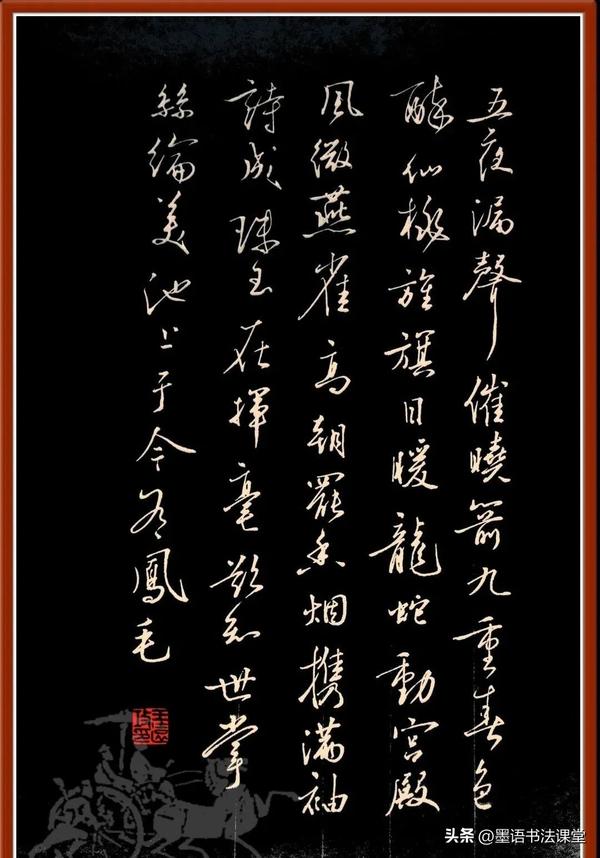 五夜漏聲催曉箭九重春色
醉仙桃旌旗日暖龍蛇動宮殿
風微燕雀高朝罷香烟携滿袖
詩成珠玉在揮毫欲知世掌
絲綸美池上于今有鳳毛
头条 @墨语书法课堂